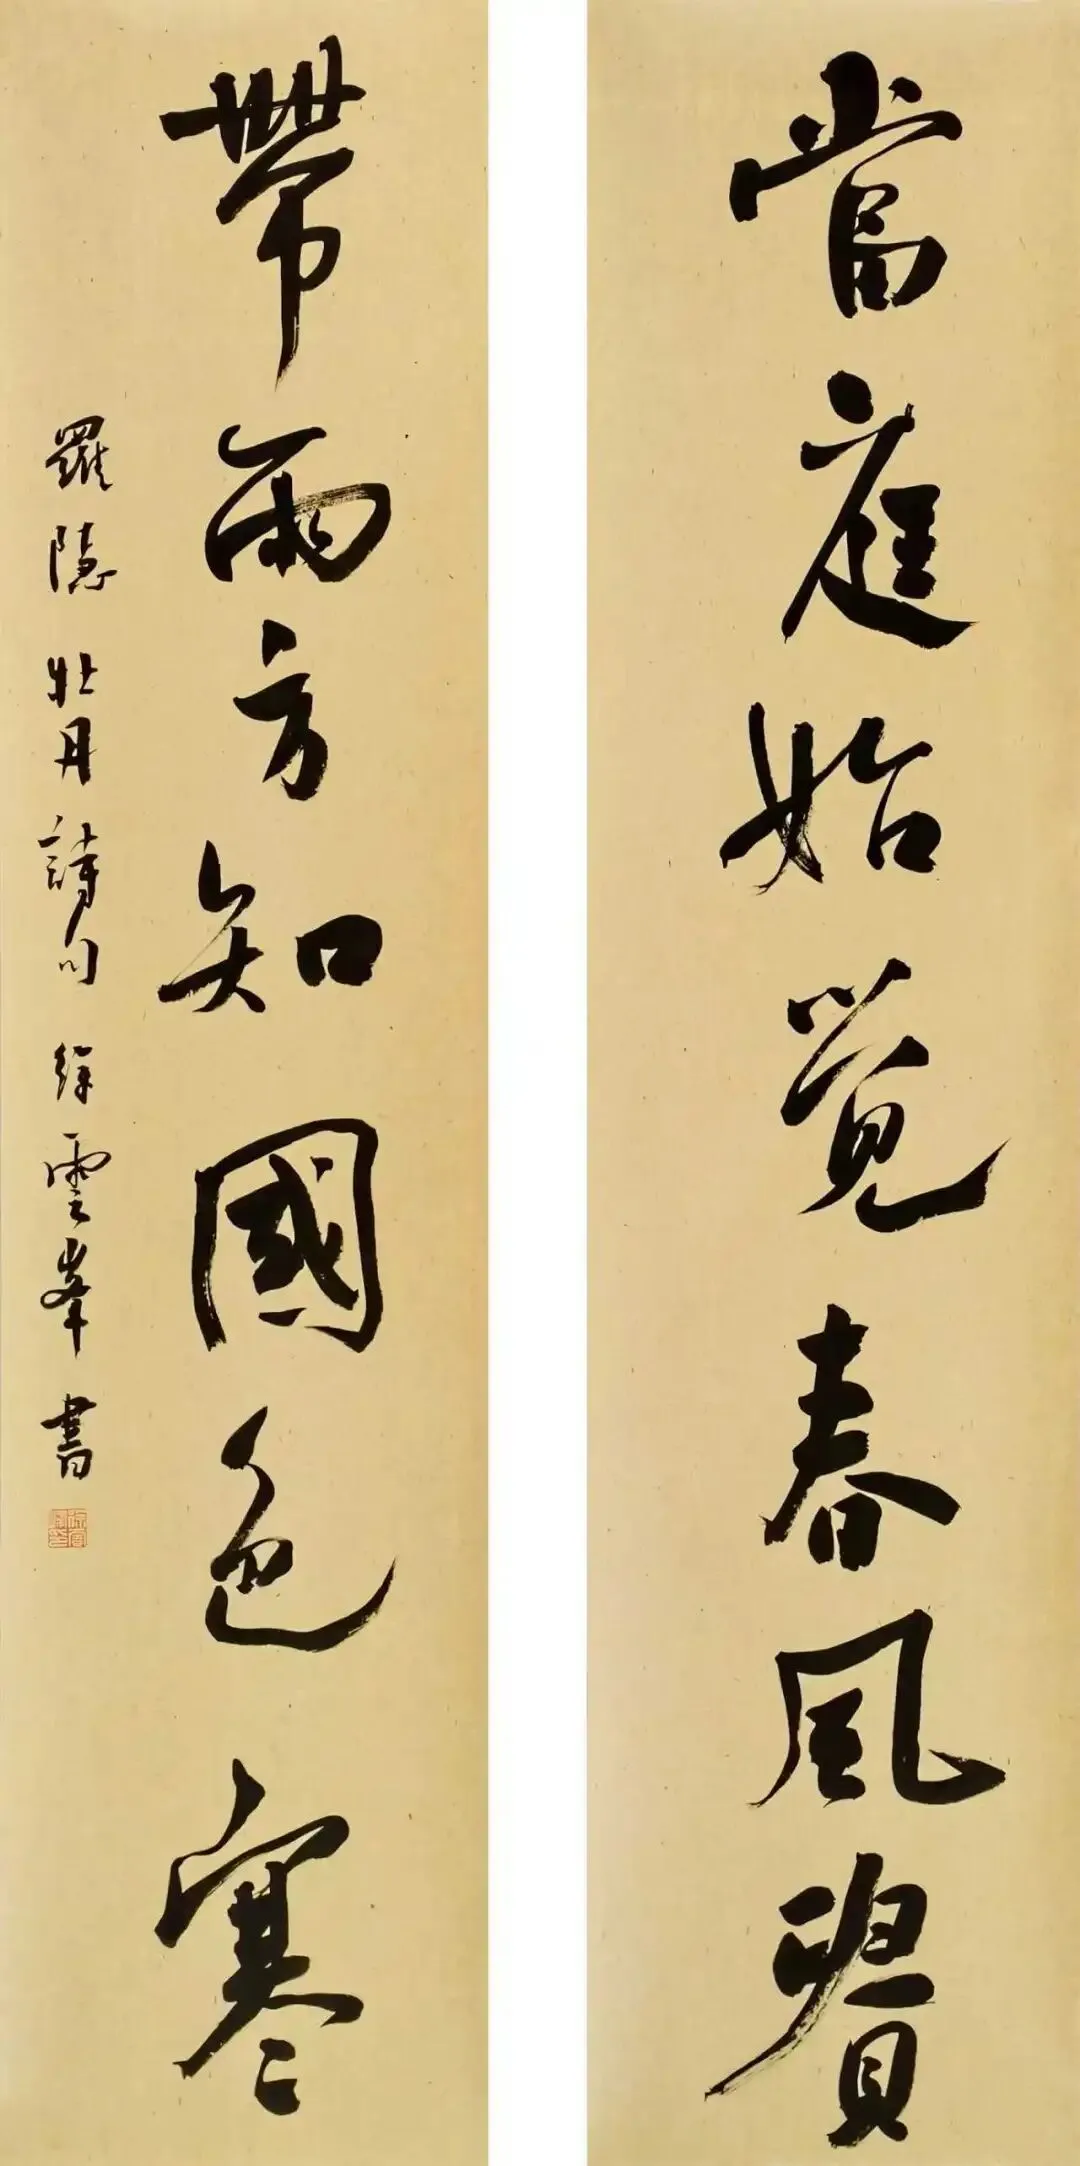 當庭始覺春風貴
帶雨方知國色寒
羅隱牡丹詩句徐雲峯書